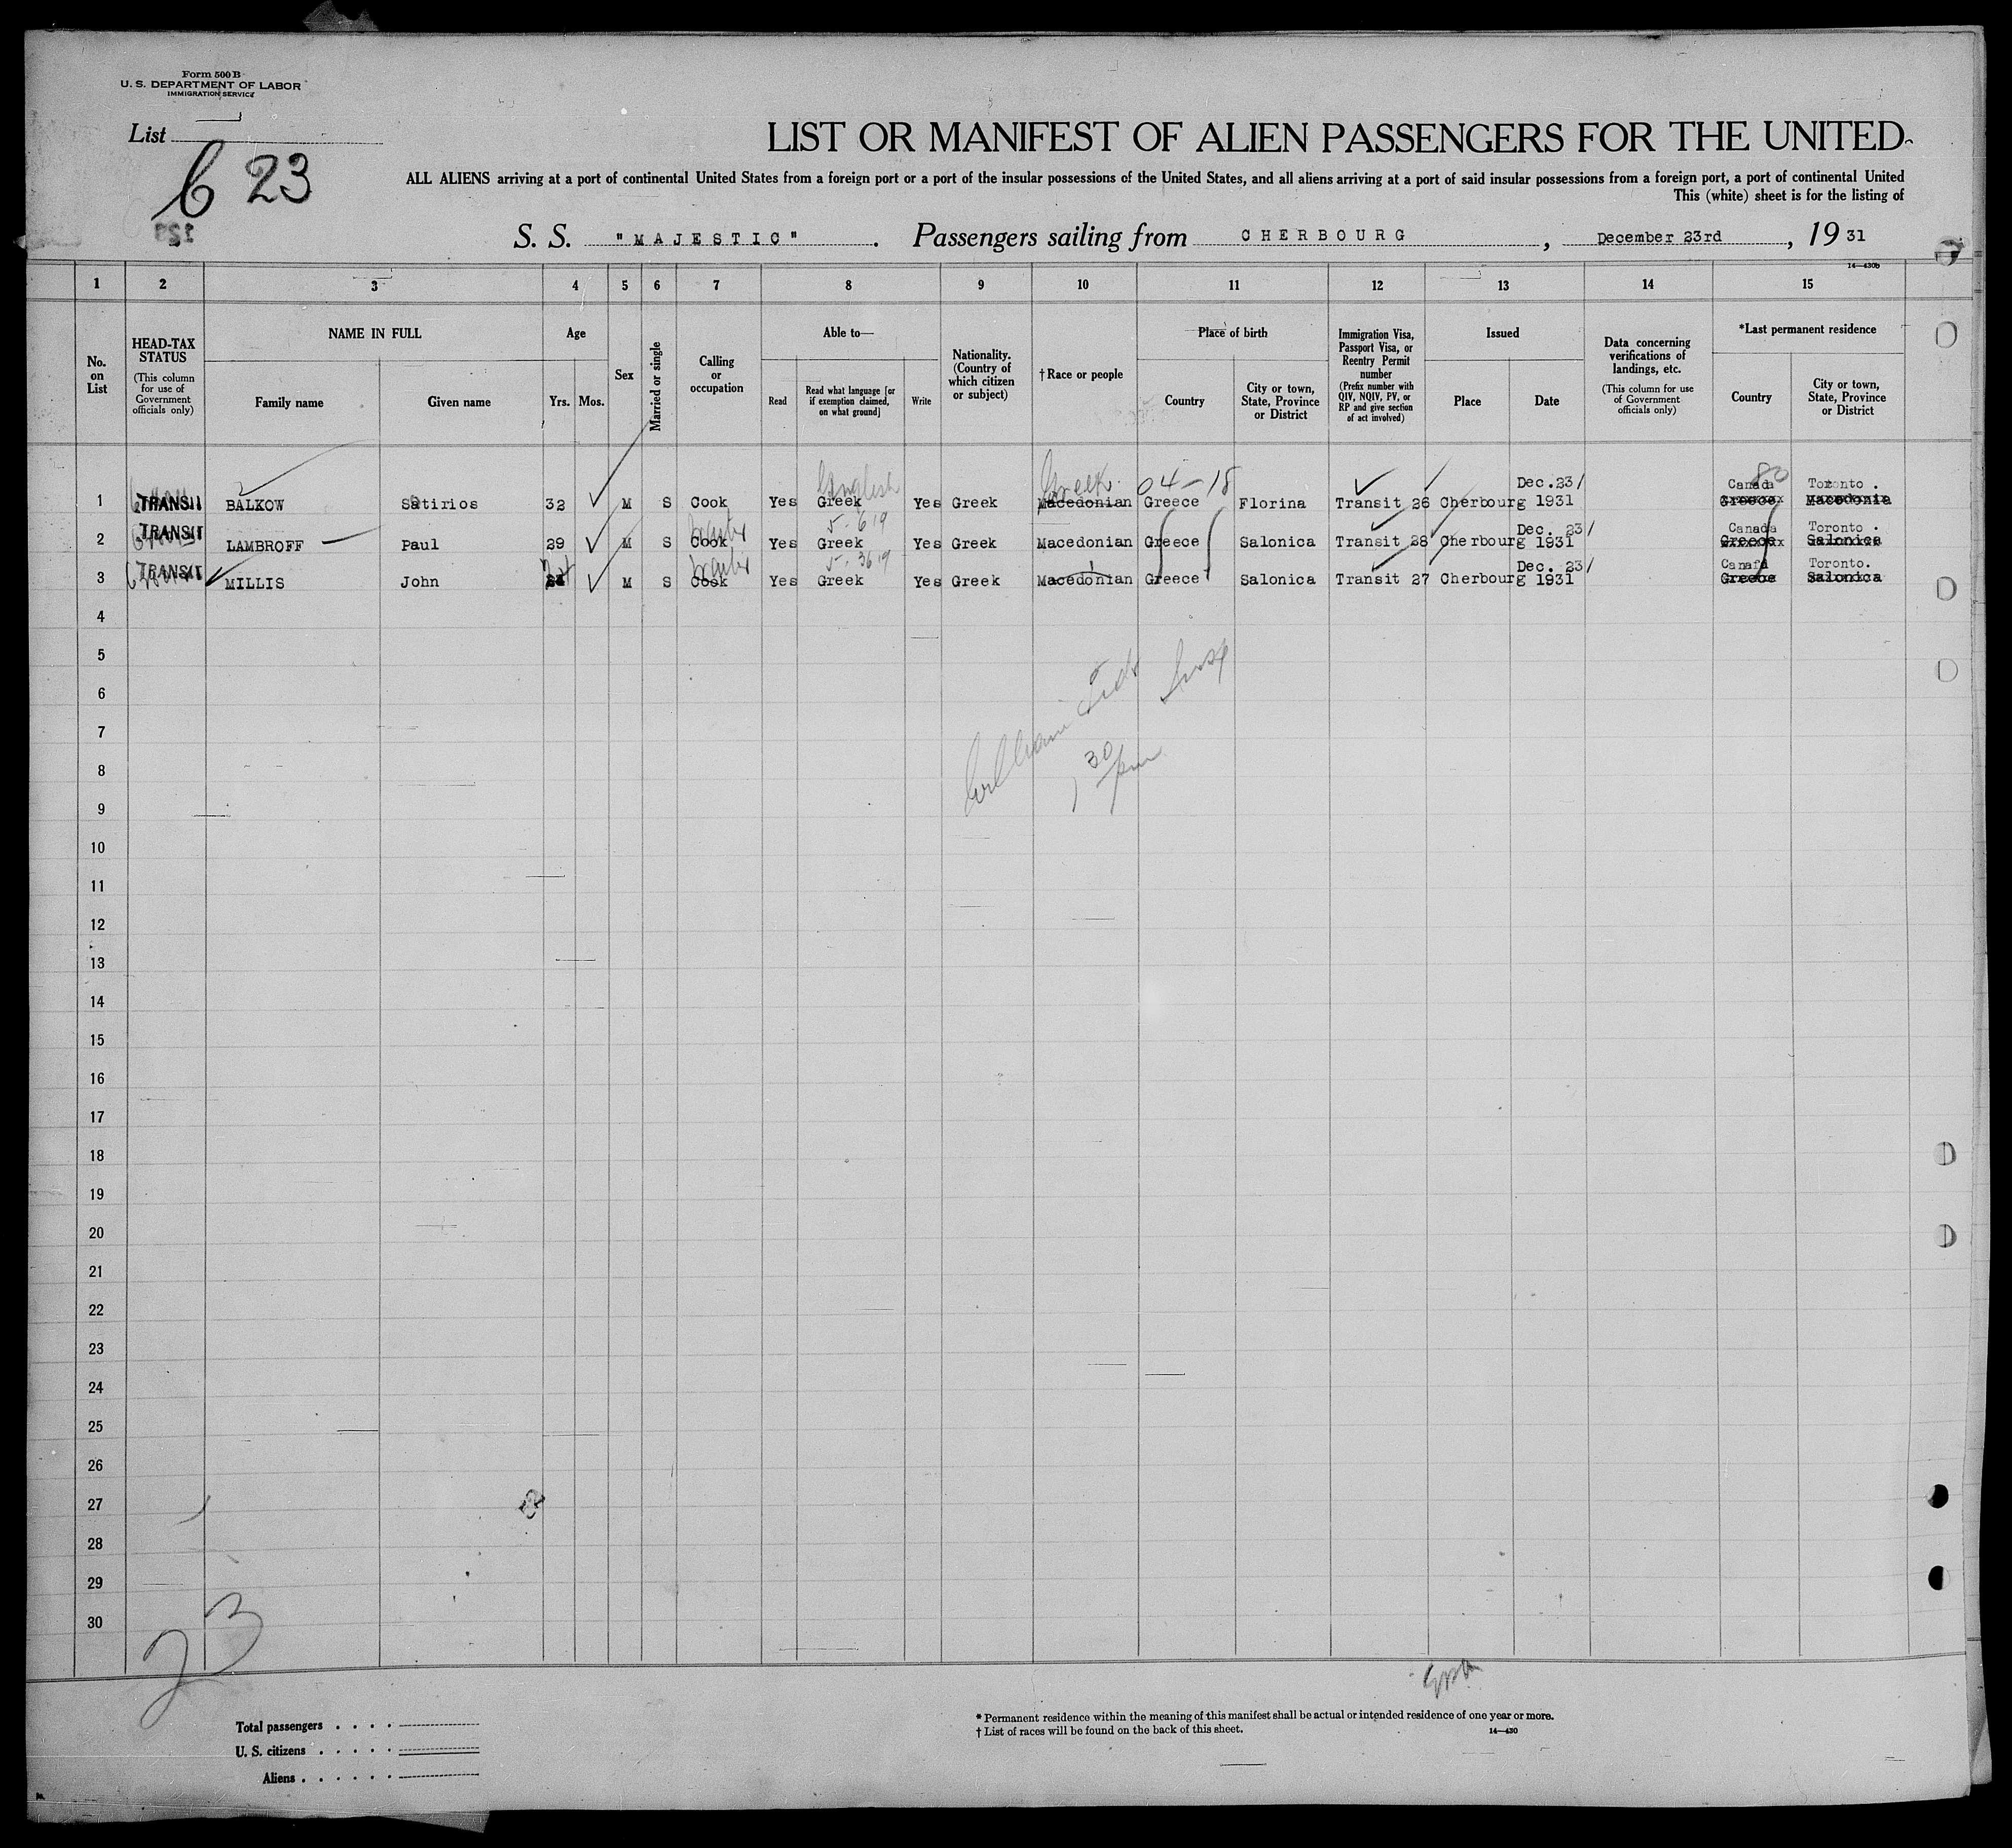 Form 500 B
U. S. DEPARTMENT OF LABOR
IMMIGRATION SERVICE
List
6 23
LIST OR MANIFEST OF ALIEN PASSENGERS FOR THE UNITED
ALL ALIENS arriving at a port of continental United States from a foreign port or a port of the insular possessions of the United States, and all aliens arriving at a port of said insular possessions from a foreign port, a port of continental United
This (white) sheet is for the listing of
S. S. "MAJESTIC" . Passengers sailing from CHERBOURG , December 23rd , 19 31
14—430b
1 2 3 4 5 6 7 8 9 10 11 12 13 14 15
No. on List
HEAD-TAX STATUS
(This column for use of Government officials only)
NAME IN FULL
Family name
Given name
Age
Yrs. Mos.
Sex
Married or single
Calling or occupation
Able to—
Read
Read what language [or if exemption claimed, on what ground]
Write
Nationality. (Country of which citizen or subject)
† Race or people
Place of birth
Country
City or town, State, Province or District
Immigration Visa, Passport Visa, or Reentry Permit number
(Prefix number with QIV, NQIV, PV, or RP and give section of act involved)
Issued
Place
Date
Data concerning verifications of landings, etc.
(This column for use of Government officials only)
*Last permanent residence
Country
City or town, State, Province or District
English Greek. 04-18 Dec.23/ Canada 80 Toronto .
1 TRANSIT BALKOW Satirios 32 M S Cook Yes Greek Yes Greek Macedonian Greece Florina Transit 26 Cherbourg 1931 Greece Macedonia
TRANSIT 5-619 Dec. 23/ Canada Toronto .
2 LAMBROFF Paul 29 M S Cook Yes Greek Yes Greek Macedonian Greece Salonica Transit 28 Cherbourg 1931 Greece Salonica
TRANSIT 5-3619 Dec. 23/ Canada Toronto.
3 MILLIS John M S Cook Yes Greek Yes Greek Macedonian Greece Salonica Transit 27 Cherbourg 1931 Greece Salonica
4
5
6
7
William
8
1 30 pm
9
10
11
12
13
14
15
16
17
18
19
20
21
22
23
24
25
26
27
28
29
30
23
Total passengers
U. S. citizens
Aliens
* Permanent residence within the meaning of this manifest shall be actual or intended residence of one year or more.
† List of races will be found on the back of this sheet.
14—430